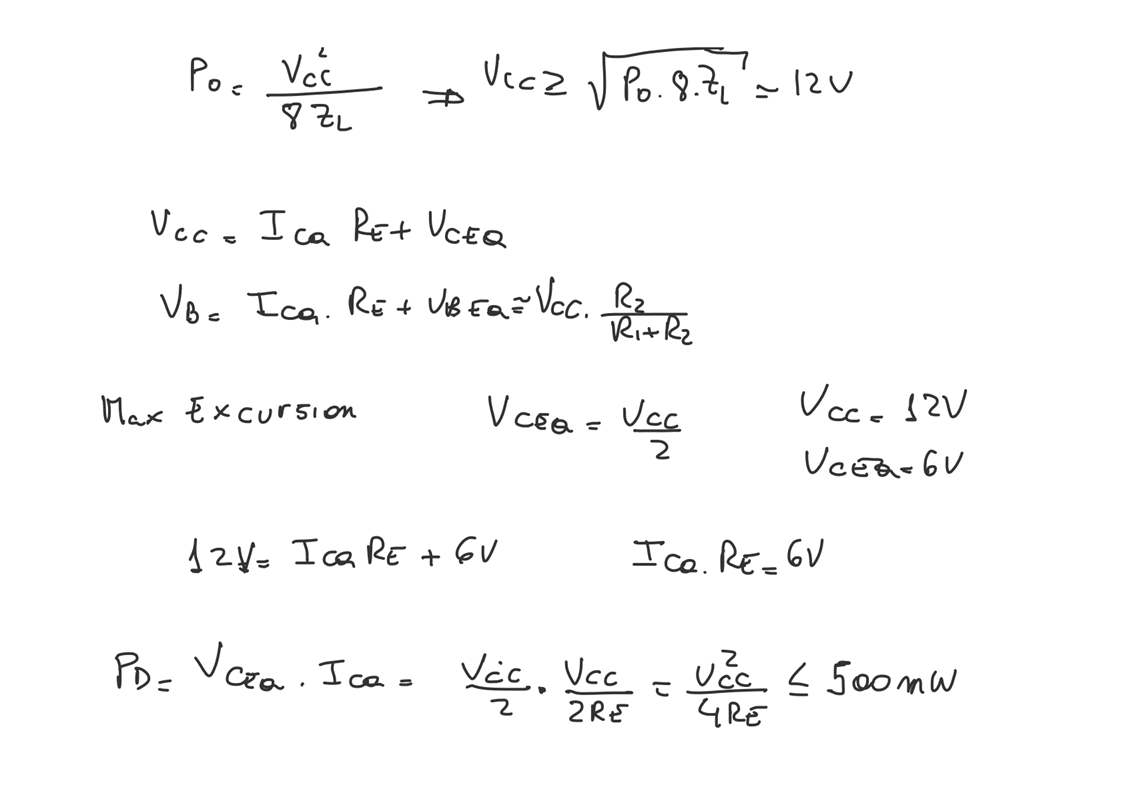 Po = Vcc² / 8 ZL ⇒ Vcc ≥ √(Po . 8 . ZL) ≃ 12V
Vcc = ICQ RE + VCEQ
VB = ICQ . RE + VBEQ ≅ Vcc . R2 / R1+R2
Max Excursion VCEQ = Vcc / 2 Vcc = 12V
VCEQ = 6V
12V = ICQ RE + 6V ICQ . RE = 6V
PD = VCEQ . ICQ = Vcc / 2 . Vcc / 2RE = Vcc² / 4RE ≤ 500mW